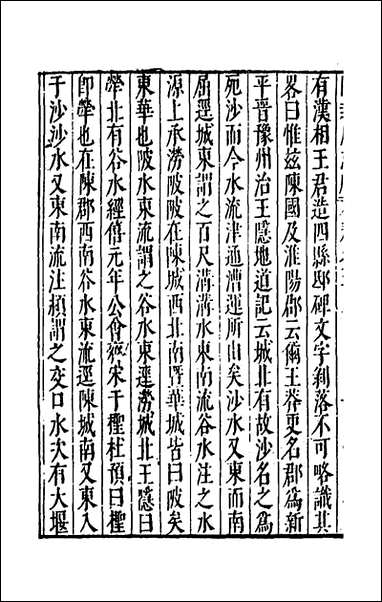 有漢相王君造四縣邸碑文字剥落不可略識其
畧曰惟玆陳國及淮陽郡云爾王莽更名郡爲新
平晉豫州治王隱地道記云城北有故沙名之爲
死沙而今水流津通漕運所由矣沙水又東而南
屈逕城東謂之百尺溝溝水東南流谷水注之水
源上承澇陂陂在陳城西北南曁犖城皆曰陂矣
東華也陂水東流謂之谷水東逕澇城北王隱曰
犖北有谷水經僖元年公會齊宋于檉杜預曰檉
卽犖也在陳郡西南谷水東流逕陳城南又東入
于沙沙水又東南流注潁謂之交口水次有大堰